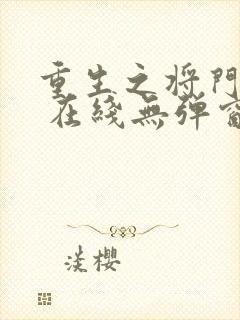 重生之将門
在綫無弹窗
淡櫻